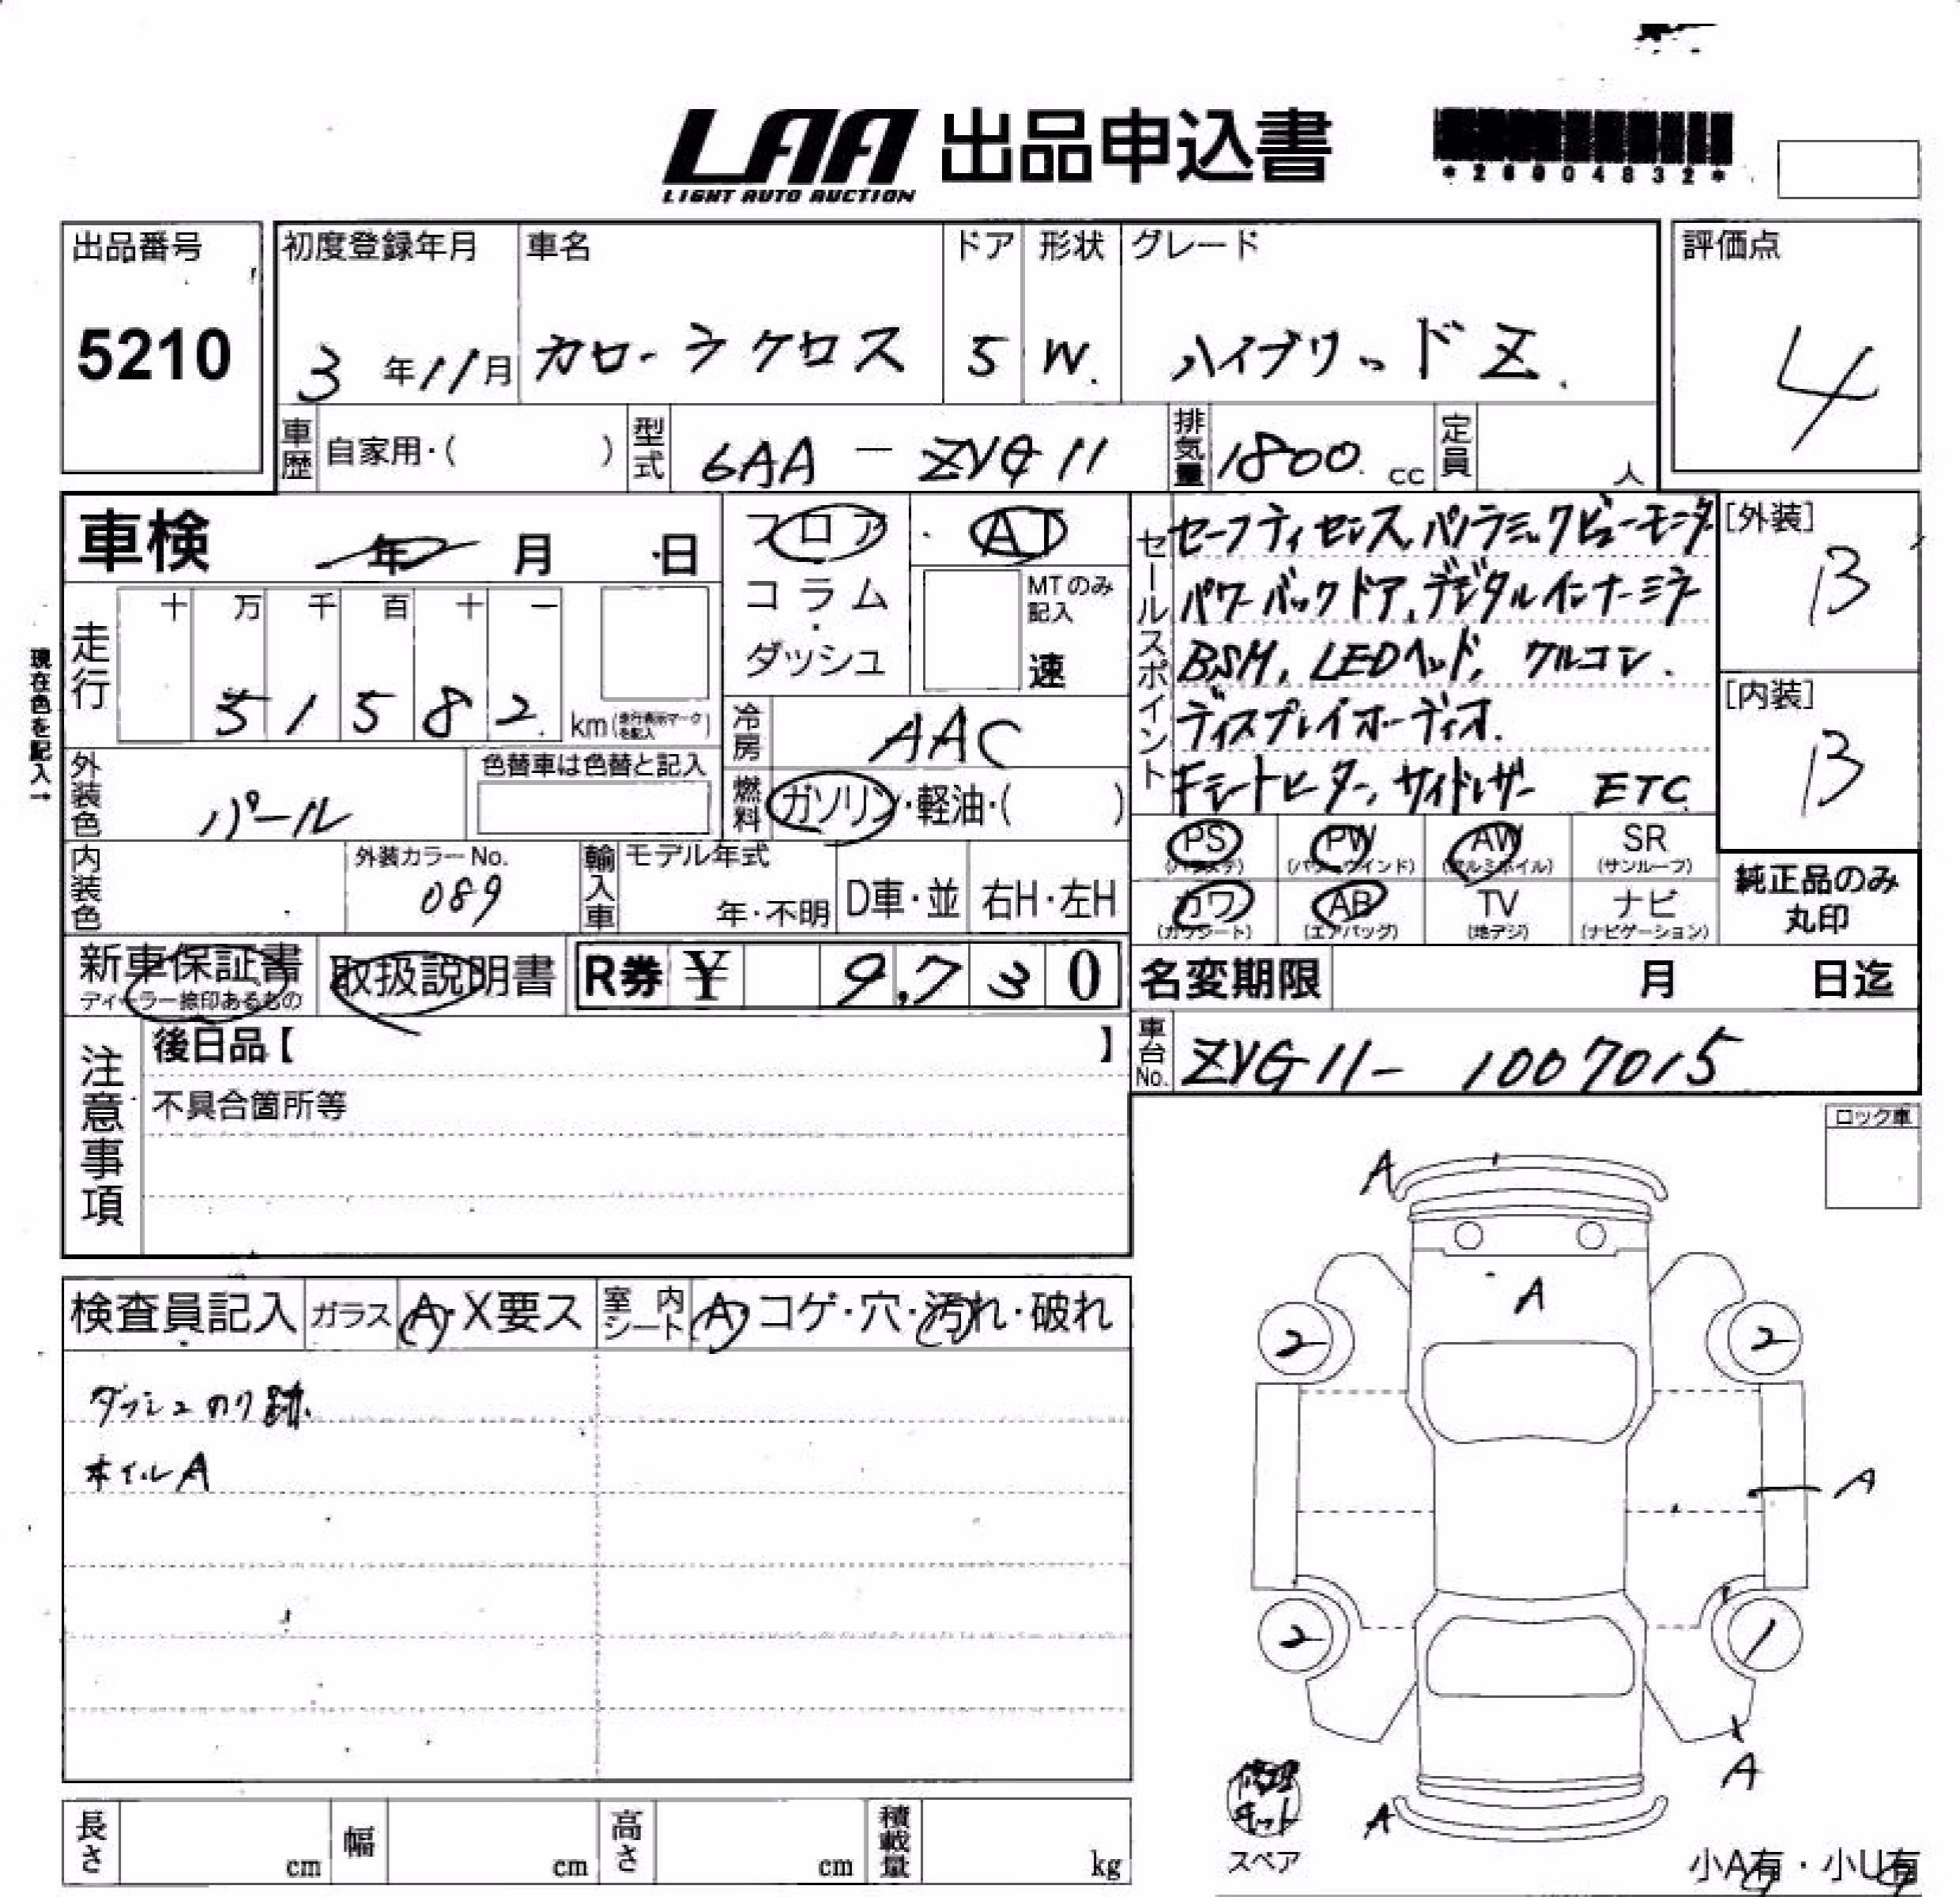 LAA 出品申込書
LIGHT AUTO AUCTION
出品番号 初度登録年月 車名 ドア 形状 グレード 評価点
5210 3年11月 カローラクロス 5 W. ハイブリッドZ. 4
車歴 自家用・( ) 型式 6AA-ZVG11 排気量 1800. cc 定員 人
車検 年 月 日 フロア AT
セールスポイント セーフティセンス,パノラミックビューモニタ
[外装] B
コラム・ MTのみ記入
パワーバックドア,デジタルインナーミラー
ダッシュ 速
BSM, LEDヘッド, クルコン.
現在色を記入→
走行 十 万 千 百 十 一
51582. km(走行表示マークを記入)
[内装] B
冷房 AAC
ディスプレイオーディオ.
外装色 パール 色替車は色替と記入
燃料 ガソリン・軽油・( )
シートヒーター, サイドレザー ETC
PS (パワステ) PW (パワーウインド) AW (アルミホイル) SR (サンルーフ)
内装色 外装カラーNo. 089 輸入車 モデル年式 年・不明 D車・並 右H・左H
カワ (カワシート) AB (エアバッグ) TV (地デジ) ナビ (ナビゲーション)
純正品のみ
丸印
新車保証書 取扱説明書 R券 ¥ 9,730 名変期限 月 日迄
ディーラー捺印あるもの
車台No. ZVG11-1007015
注意事項 後日品【 】
不具合箇所等
ロック車
A
検査員記入 ガラス A・X要ス 室内シート A・コゲ・穴・汚れ・破れ
A
2 2
ダッシュのり跡.
ホイルA
A
2 1
A
修理キット
スペア
A
長さ cm 幅 cm 高さ cm 積載量 kg
小A有・小U有